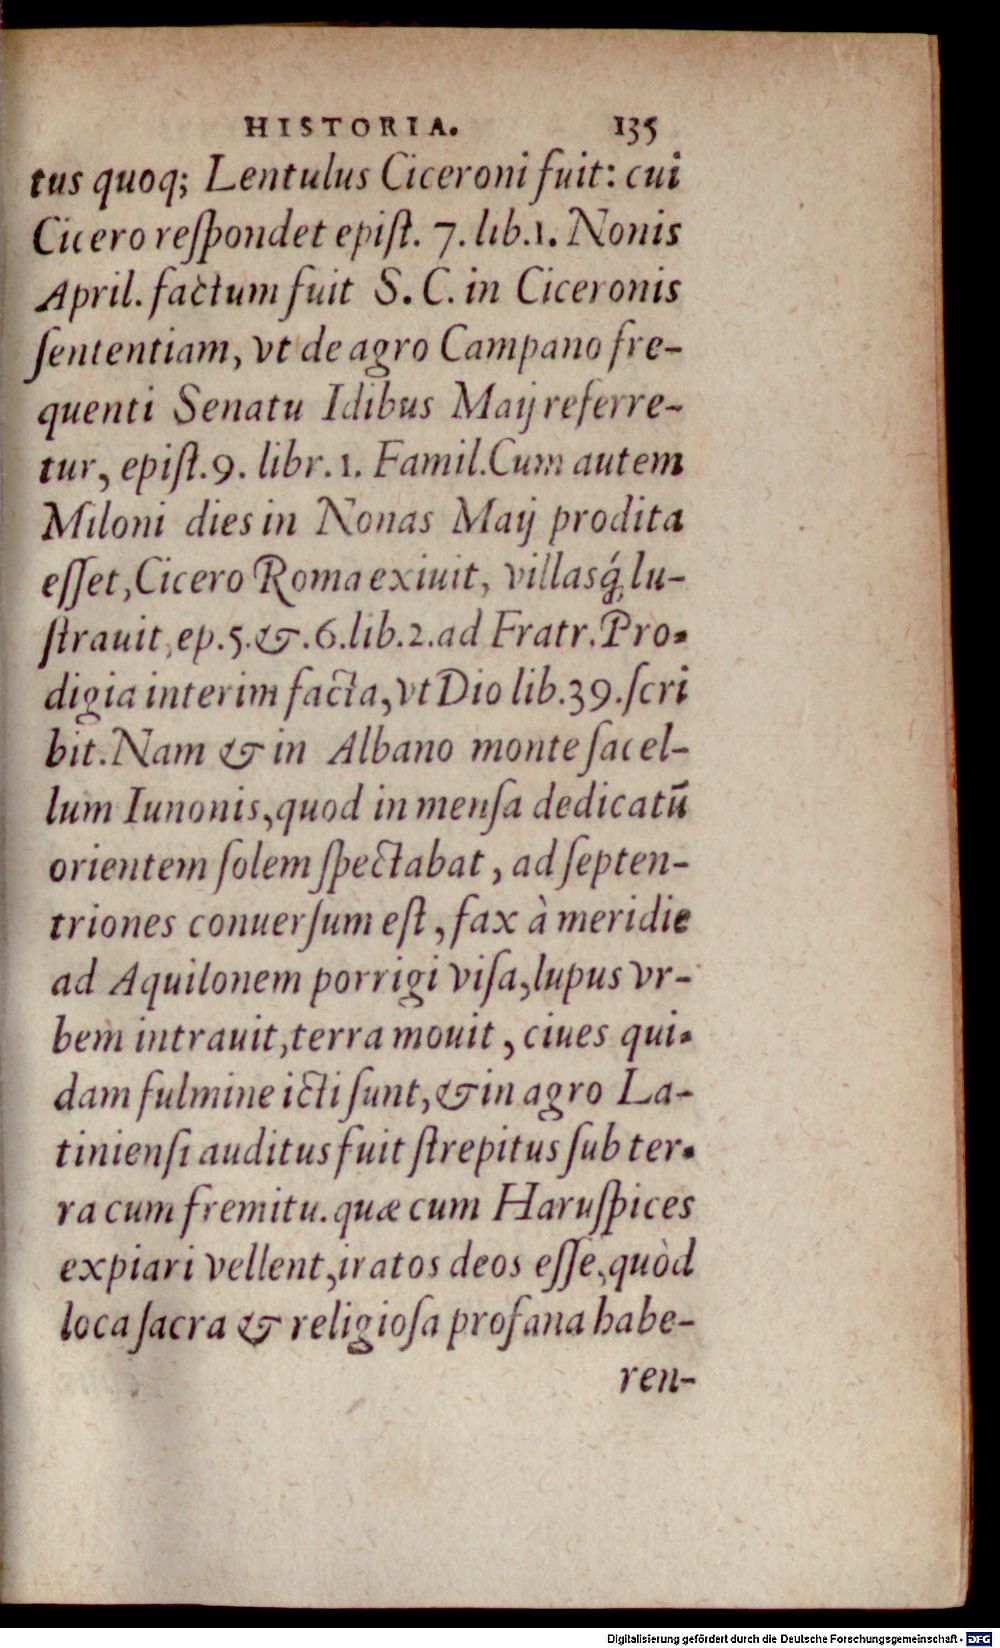 HISTORIA. 135
tus quoq; Lentulus Ciceroni fuit: cui
Cicero reſpondet epiſt. 7. lib.1. Nonis
April. factum fuit S. C. in Ciceronis
ſententiam, vt de agro Campano fre-
quenti Senatu Idibus Maij referre-
tur, epiſt.9. libr.1. Famil.Cum autem
Miloni dies in Nonas Maij prodita
eſſet, Cicero Roma exiuit, villasq́; lu-
ſtrauit, ep.5.&.6.lib.2.ad Fratr.Pro-
digia interim facta, vt Dio lib.39.ſcri
bit. Nam & in Albano monte ſacel-
lum Iunonis, quod in menſa dedicatũ
orientem ſolem ſpectabat, ad ſepten-
triones conuerſum eſt, fax à meridie
ad Aquilonem porrigi viſa, lupus vr-
bem intrauit, terra mouit, ciues qui-
dam fulmine icti ſunt, & in agro La-
tinienſi auditus fuit ſtrepitus ſub ter-
ra cum fremitu. quæ cum Haruſpices
expiari vellent, iratos deos eſſe, quòd
loca ſacra & religioſa profana habe-
ren-
Digitalisierung gefördert durch die Deutsche Forschungsgemeinschaft - DFG